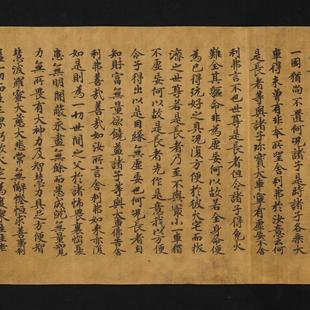 一國猶尚不匱何況諸子是時諸子各乘大
車得未曾有非本所望舍利弗於汝意云何
是長者等與諸子珍寶大車寧有虛妄不舍
利弗言不也世尊是長者但令諸子得免火
難全其軀命非為虛妄何以故若全身命便
為已得玩好之具況復方便於彼火宅而拔
濟之世尊若是長者乃至不與最小一車猶
不虛妄何以故是長者先作是意我以方便
令子得出以是因緣無虛妄也何況長者自
知財富無量欲饒益諸子等與大車佛告舍
利弗善哉善哉如汝所言舍利弗如來亦復
如是則為一切世間之父於諸怖畏衰惱憂
患無明闇蔽永盡無餘而悉成就無量知見
力無所畏有大神力及智慧力具足方便智
慧波羅蜜大慈大悲常無懈惓恒求善事利
益一切而生三界朽故火宅為度眾生